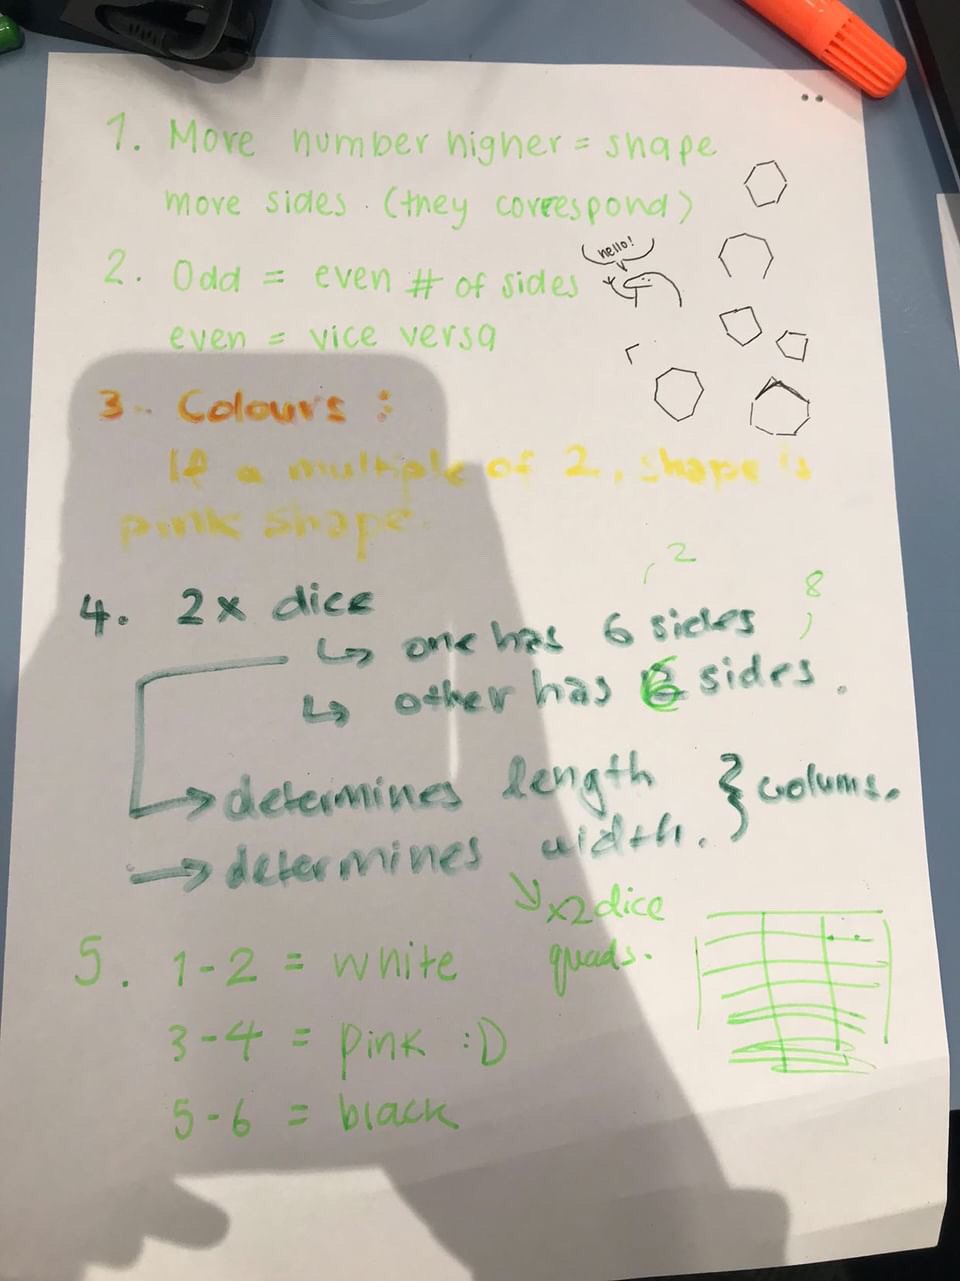 1. More number higher = shape
more sides. (they correspond)
hello!
2. Odd = even # of sides
even = vice versa
3. Colours:
If a multiple of 2, shape is
pink shape.
, 2
8
,
4. 2x dice
↳ one has 6 sides
↳ other has 6 sides.
→ determines length
→ determines width. } colums.
↘ x2 dice
quads.
5. 1-2 = white
3-4 = pink :D
5-6 = black